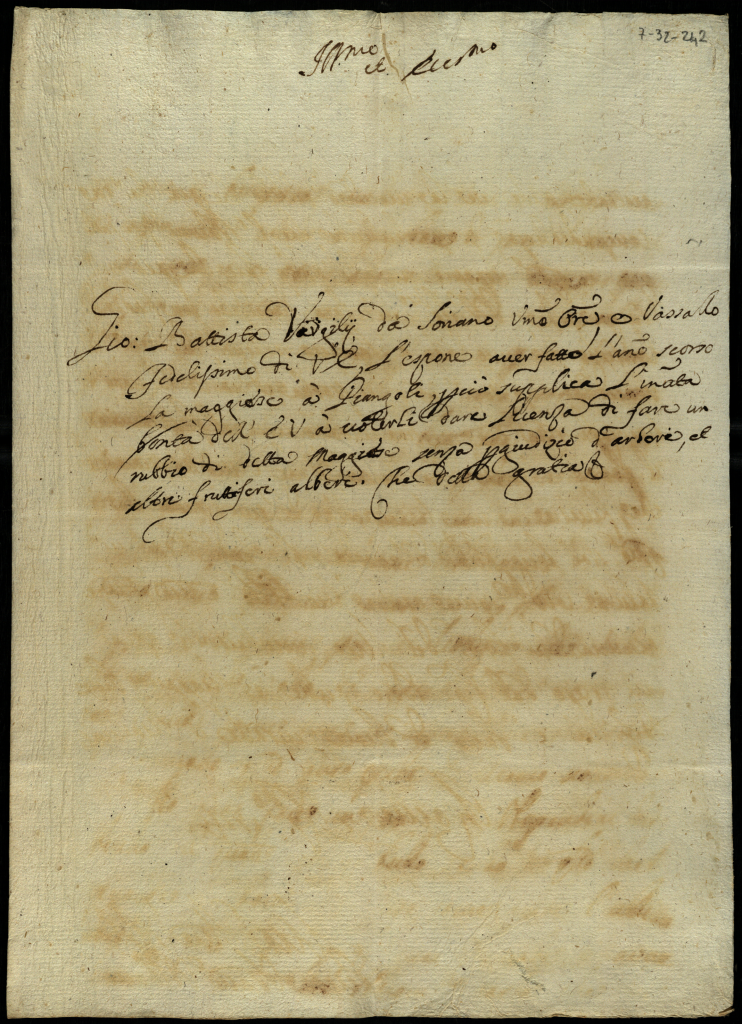 7-32-242
Ill.mo et Ecc.mo
Gio: Battista Virgilij da Soriano Um.o Ore e Vassallo
Fedelissimo di V E, L'espone auer fatto l'año scorso
la maggese à Piangoli, pciò supplica l'inãta
bontà dell' E V à volerli dare licenza di fare un
rubbio di detta Maggese senza pgiudizio d'arbori, et
altri fruttiferi alberi. Che della gratia